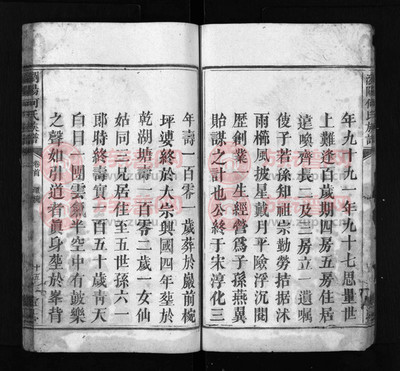 年九十九一年九十七思量世
上難逢百歲期四房五房住居
遠喚齊長二及三房立一遺囑
俊子若孫知祖宗勤勞拮据沐
雨櫛風披星戴月平險浮沉閱
歷創業生經營爲子孫燕翼
貽謀之計也公終于宋淳化三
年壽一百零一歲葬於巖前梘
坪婆終於大宗興國四年塟於
乾湖塘壽一百零二歲一女仙
姑同三兄居住至五世孫六一
郎時終壽實一百五十歲靑天
白日一團雲氣半空中有鼓樂
之聲如引道者眞身塟於峯背